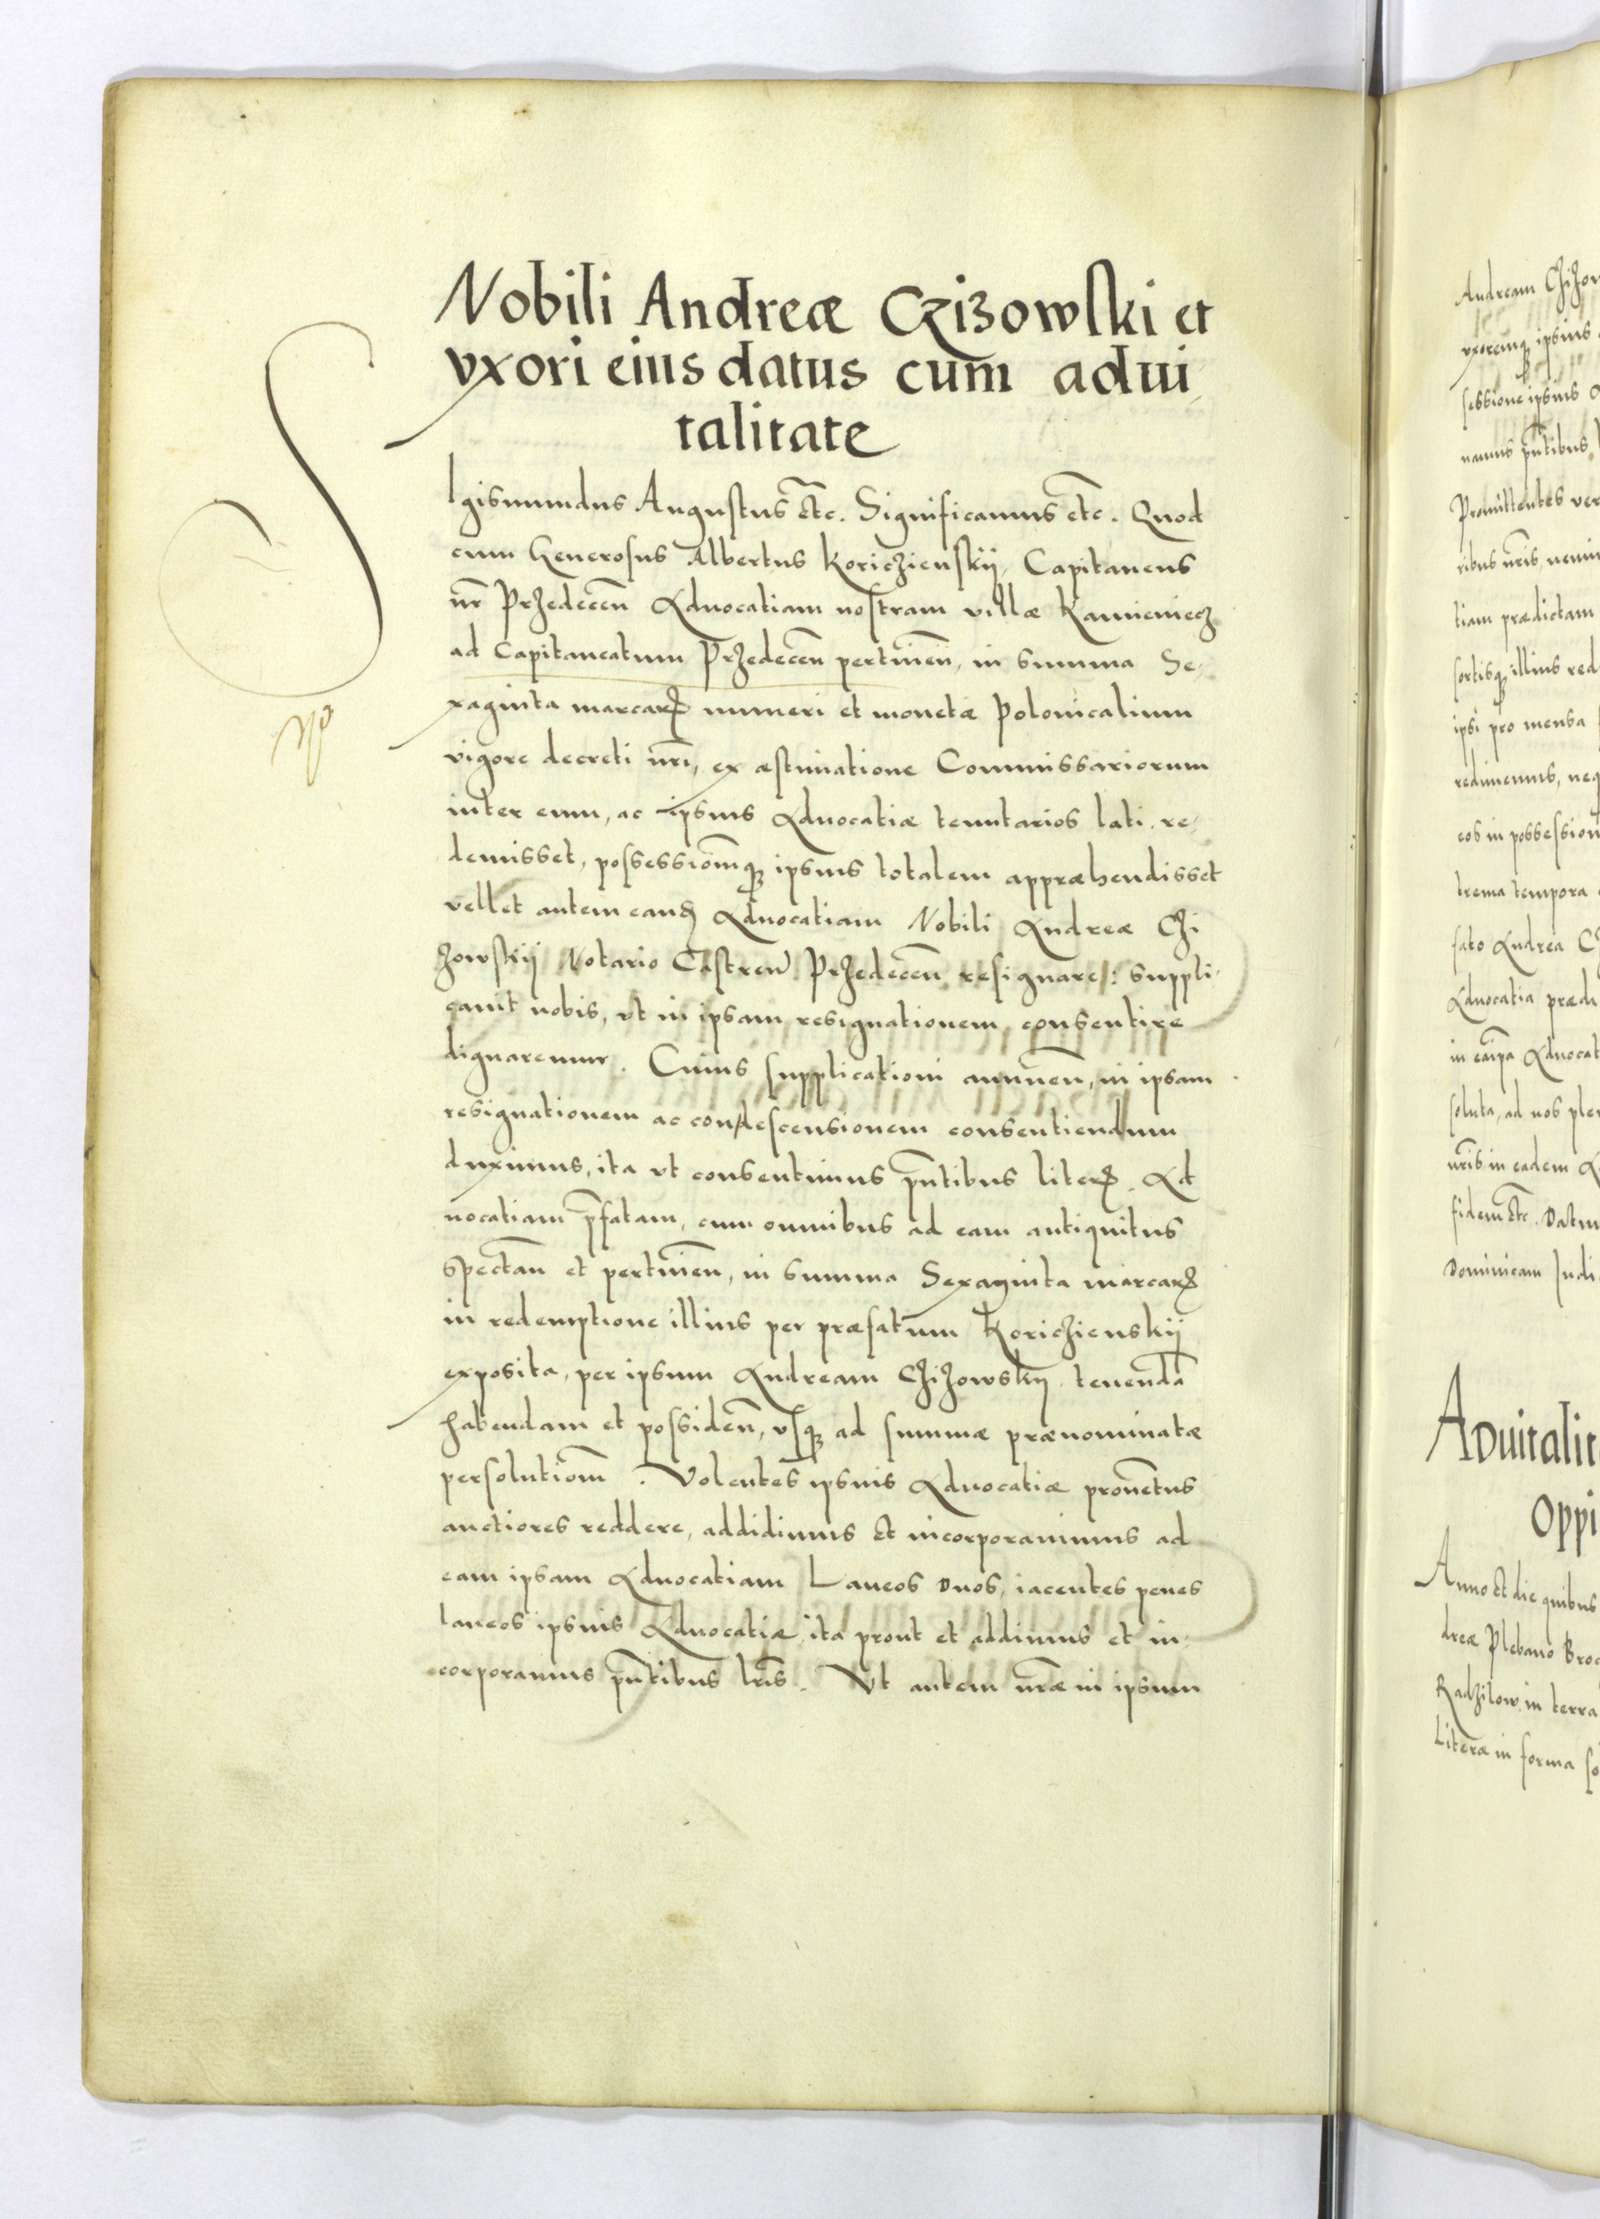 Nobili Andreæ Czizowski et
vxori eius datus cum adui,
talitate
SIgismundus Augustus etc. Significamus etc. Quod
cum Generosus Albertus Koriczienskÿ, Capitaneus
nr̄ Przedeceñ Aduocatiam nostram villæ Kamieniecz
ad Capitaneatum Przedeceñ pertineñ, in summa Se-
xaginta marcarꝝ numeri et monetæ Polonicalium
vigore decreti nr̄i, ex æstimatione Commissariorum
inter eum, ac ipsius Aduocatiæ tenutarios lati, re-
demisset, possessionemqꝫ ipsius totalem appræhendisset
vellet autem eandꝫ Aduocatiam Nobili Andreæ Czi
zowskÿ Notario Castreñ Przedeceñ resignare: suppli-
cauit nobis, vt in ipsam resignationem consentire
dignaremur. Cuius supplicationi annueñ, in ipsam
resignationem ac condescensionem consentiendum
duximus, ita vt consentimus pn̄tibus literꝭ. Ad
uocatiam p̄fatam, cum omnibus ad eam antiquitus
spectañ et pertineñ, in summa Sexaginta marcarꝝ
in redemptione illius per præfatum Koriczienskÿ
exposita, per ipsum Andream Czizowskÿ tenendā
habendam et possideñ, vsqꝫ ad summæ prænominatæ
persolutionē. Volentes ipsius Aduocatiæ prouentus
auctiores reddere, addidimus et incorporauimus ad
eam ipsam Aduocatiam Laneos duos, iacentes penes
laneos ipsius Aduocatiæ, ita prout et addimus et in-
corporamus pn̄tibus lr̄is. Vt autem nr̄æ in ipsum
Andream Czizow
vxoremqꝫ ipsius
sessione ipsius
pn̄tibus
Promittentes ver
ribus nr̄is,
tiam prædictam
sortisqꝫ illius red
ipsi pro mensa
redimemus, neq
eos in possession
trema tempora
fato Andrea Cz
Aduocatia prædi
in Aduocat
soluta, ad nos ple
nr̄is in eadem A
fidem etc. Datum
Dominicam Judi
Aduitalit
Oppi
Anno et die quibus
dreæ Plebano Bro
Radzilow in terra
Literæ in forma